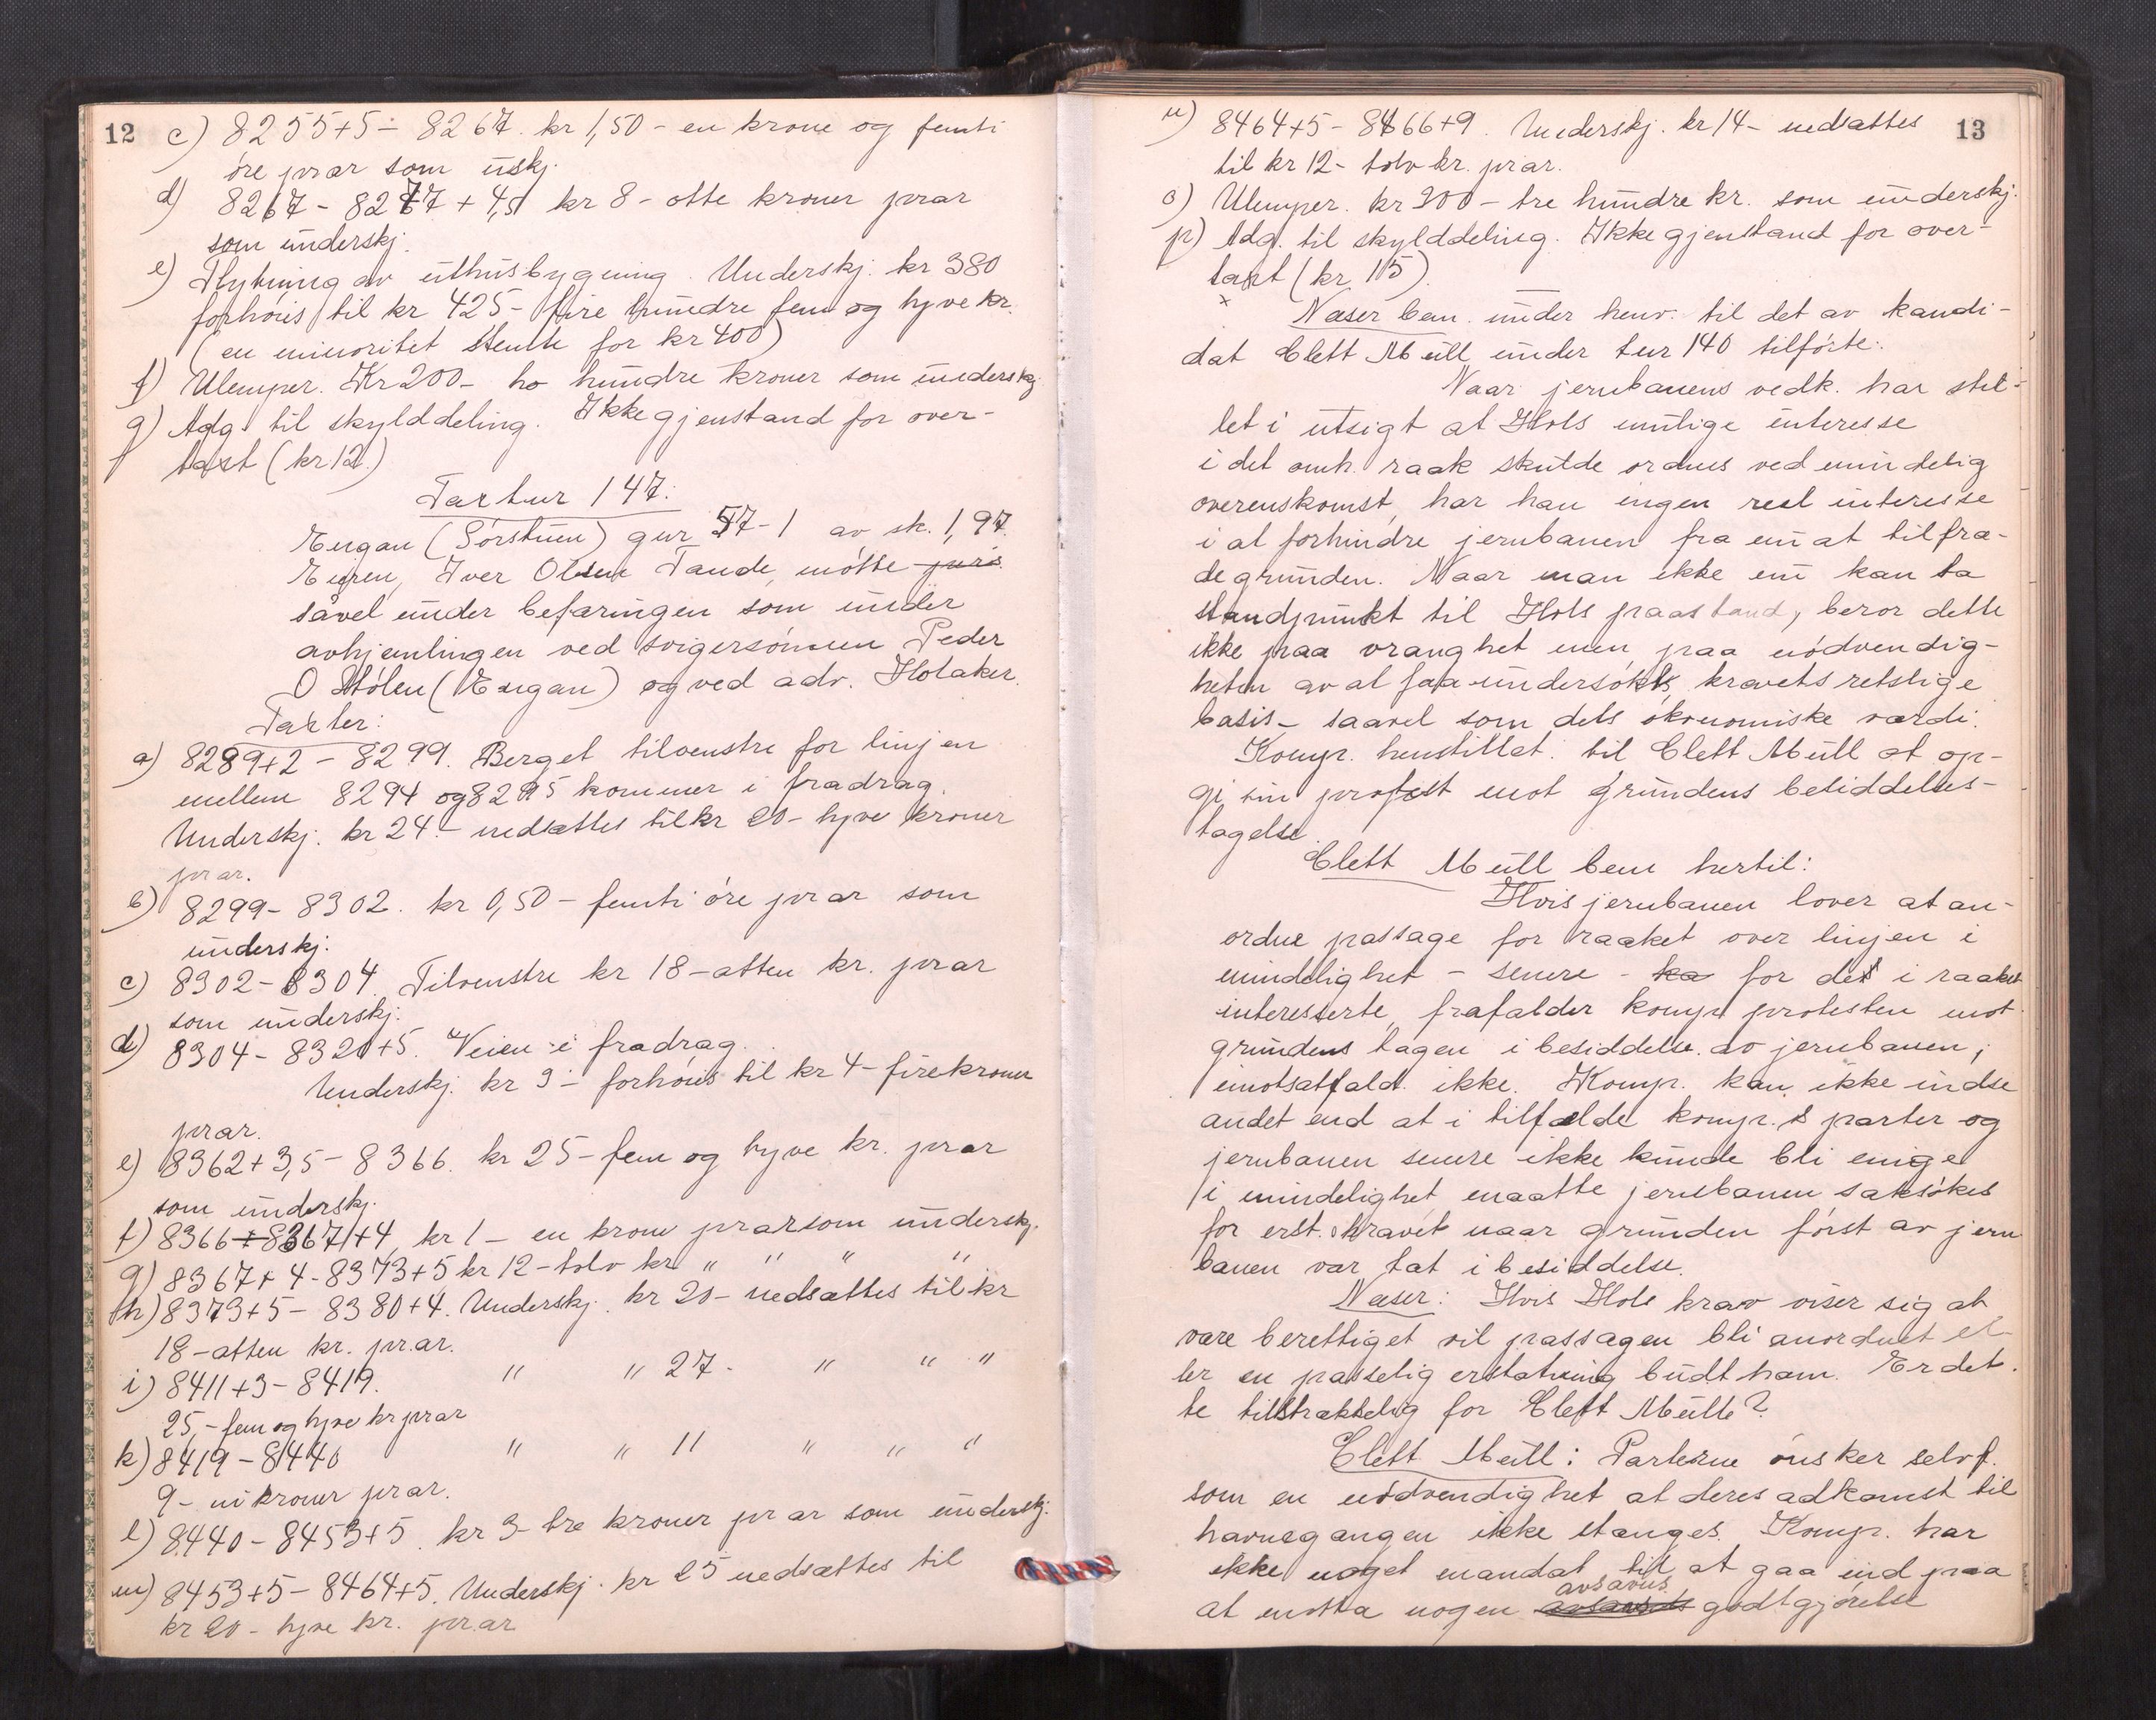 12
c) 8255+5 - 8267. kr 1,50 - en krone og femti
øre pr ar som uskj.
d) 8267 - 8277 + 4,5 kr 8 - otte kroner pr ar
som underskj.
e) Flytning av uthusbygning. Underskj. kr 380
forhøies til kr 425 - fire hundre fem og tyve kr.
(en minoritet stemte for kr 400)
f) Ulemper. Kr 200 - to hundre kroner som underskj.
g) Adg. til skylddeling. Ikke gjenstand for over-
taxt (kr 12.)
Taxtur 147:
Engan (Sørstuen) gnr 57-1 av sk. 1,97.
Eieren, Iver Olsen Tande, møtte
såvel under befaringen som under
avhjemlingen ved svigersønnen Peder
O Stølen (Engan) og ved adv. Holaker.
Taxter:
a) 8289+2 - 8299. Berget tilvenstre for linjen
mellem 8294 og 8295 kommer i fradrag.
Underskj. kr 24 - nedsættes til kr 20 - tyve kroner
pr ar.
b) 8299 - 8302. kr 0,50 - femti øre pr ar som
underskj.
c) 8302 - 8304. Tilvenstre kr 18 - atten kr. pr ar
som underskj.
d) 8304 - 8320+5. Veien i fradrag.
Underskj. kr 3 - forhøies til kr 4 - fire kroner
pr ar.
e) 8362+3,5 - 8366. kr 25 - fem og tyve kr. pr ar
som underskj.
f) 8366 - 8367+4, kr 1 - en krone pr ar som underskj.
g) 8367+4 - 8373+5 kr 12 - tolv kr " " " "
h) 8373+5 - 8380+4. Underskj. kr 20 - nedsættes til kr
18 - atten kr. pr. ar.
i) 8411+3 - 8419. " " 27 - " " "
25, - fem og tyve kr pr ar
k) 8419 - 8440 " " 11 " " "
9 - ni kroner pr ar.
l) 8440 - 8453+5. kr 3 - tre kroner pr ar som underskj.
m) 8453+5 - 8464+5. Underskj. kr 25 nedsættes til
kr 20 - tyve kr. pr. ar
13
n) 8464+5 - 8466+9. Underskj. kr 14 - nedsættes
til kr 12 - tolv kr. pr ar.
o) Ulemper. kr 300 - tre hundre kr. som underskj.
p) Adg. til skylddeling. Ikke gjenstand for over-
taxt (kr 15).
x
Næser bem. under henv. til det av kandi-
dat Clett Müll under tur 140 tilførte:
Naar jernbanens vedk. har stil-
let i utsigt at Hols mulige interesse
i det omh. raak skulde ordnes ved mindelig
overenskomst, har han ingen reel interesse
i at forhindre jernbanen fra nu at tiltræ-
de grunden. Naar man ikke nu kan ta
standpunkt til Hols paastand, beror dette
ikke paa vranghet men paa nødvendig-
heten av at faa undersøkt kravets retslige
basis - saavel som dets økonomiske værdi.
Komp. henstillet til Clett Müll at op-
gi sin protest mot grundens besiddelses-
tagelse.
Clett Müll bem hertil:
Hvis jernbanen lover at an-
ordne passage for raaket over linjen i
mindelighet - senere - ka for det i raaket
interesserte, frafalder komp protesten mot
grundens tagen i besiddelse av jernbanen,
imotsatfald ikke. Komp. kan ikke indse
andet end at i tilfælde komp.s parter og
jernbanen senere ikke kunde bli enige
i mindelighet maatte jernbanen saksøkes
for erst.kravet naar grunden først av jern
banen var tat i besiddelse.
Næser: Hvis Hols krav viser sig at
være berettiget vil passagen bli anordnet el-
ler en passelig erstatning budt ham. Er det-
te tilstrækkelig for Clett Mülle?
Clett Müll: Parterne ønsker selvf.
som en nødvendighet at deres adkomst til
havnegangen ikke stanges. Komp. har
ikke noget mandat til at gaa ind paa
at motta nogen avsavns godtgjørelse